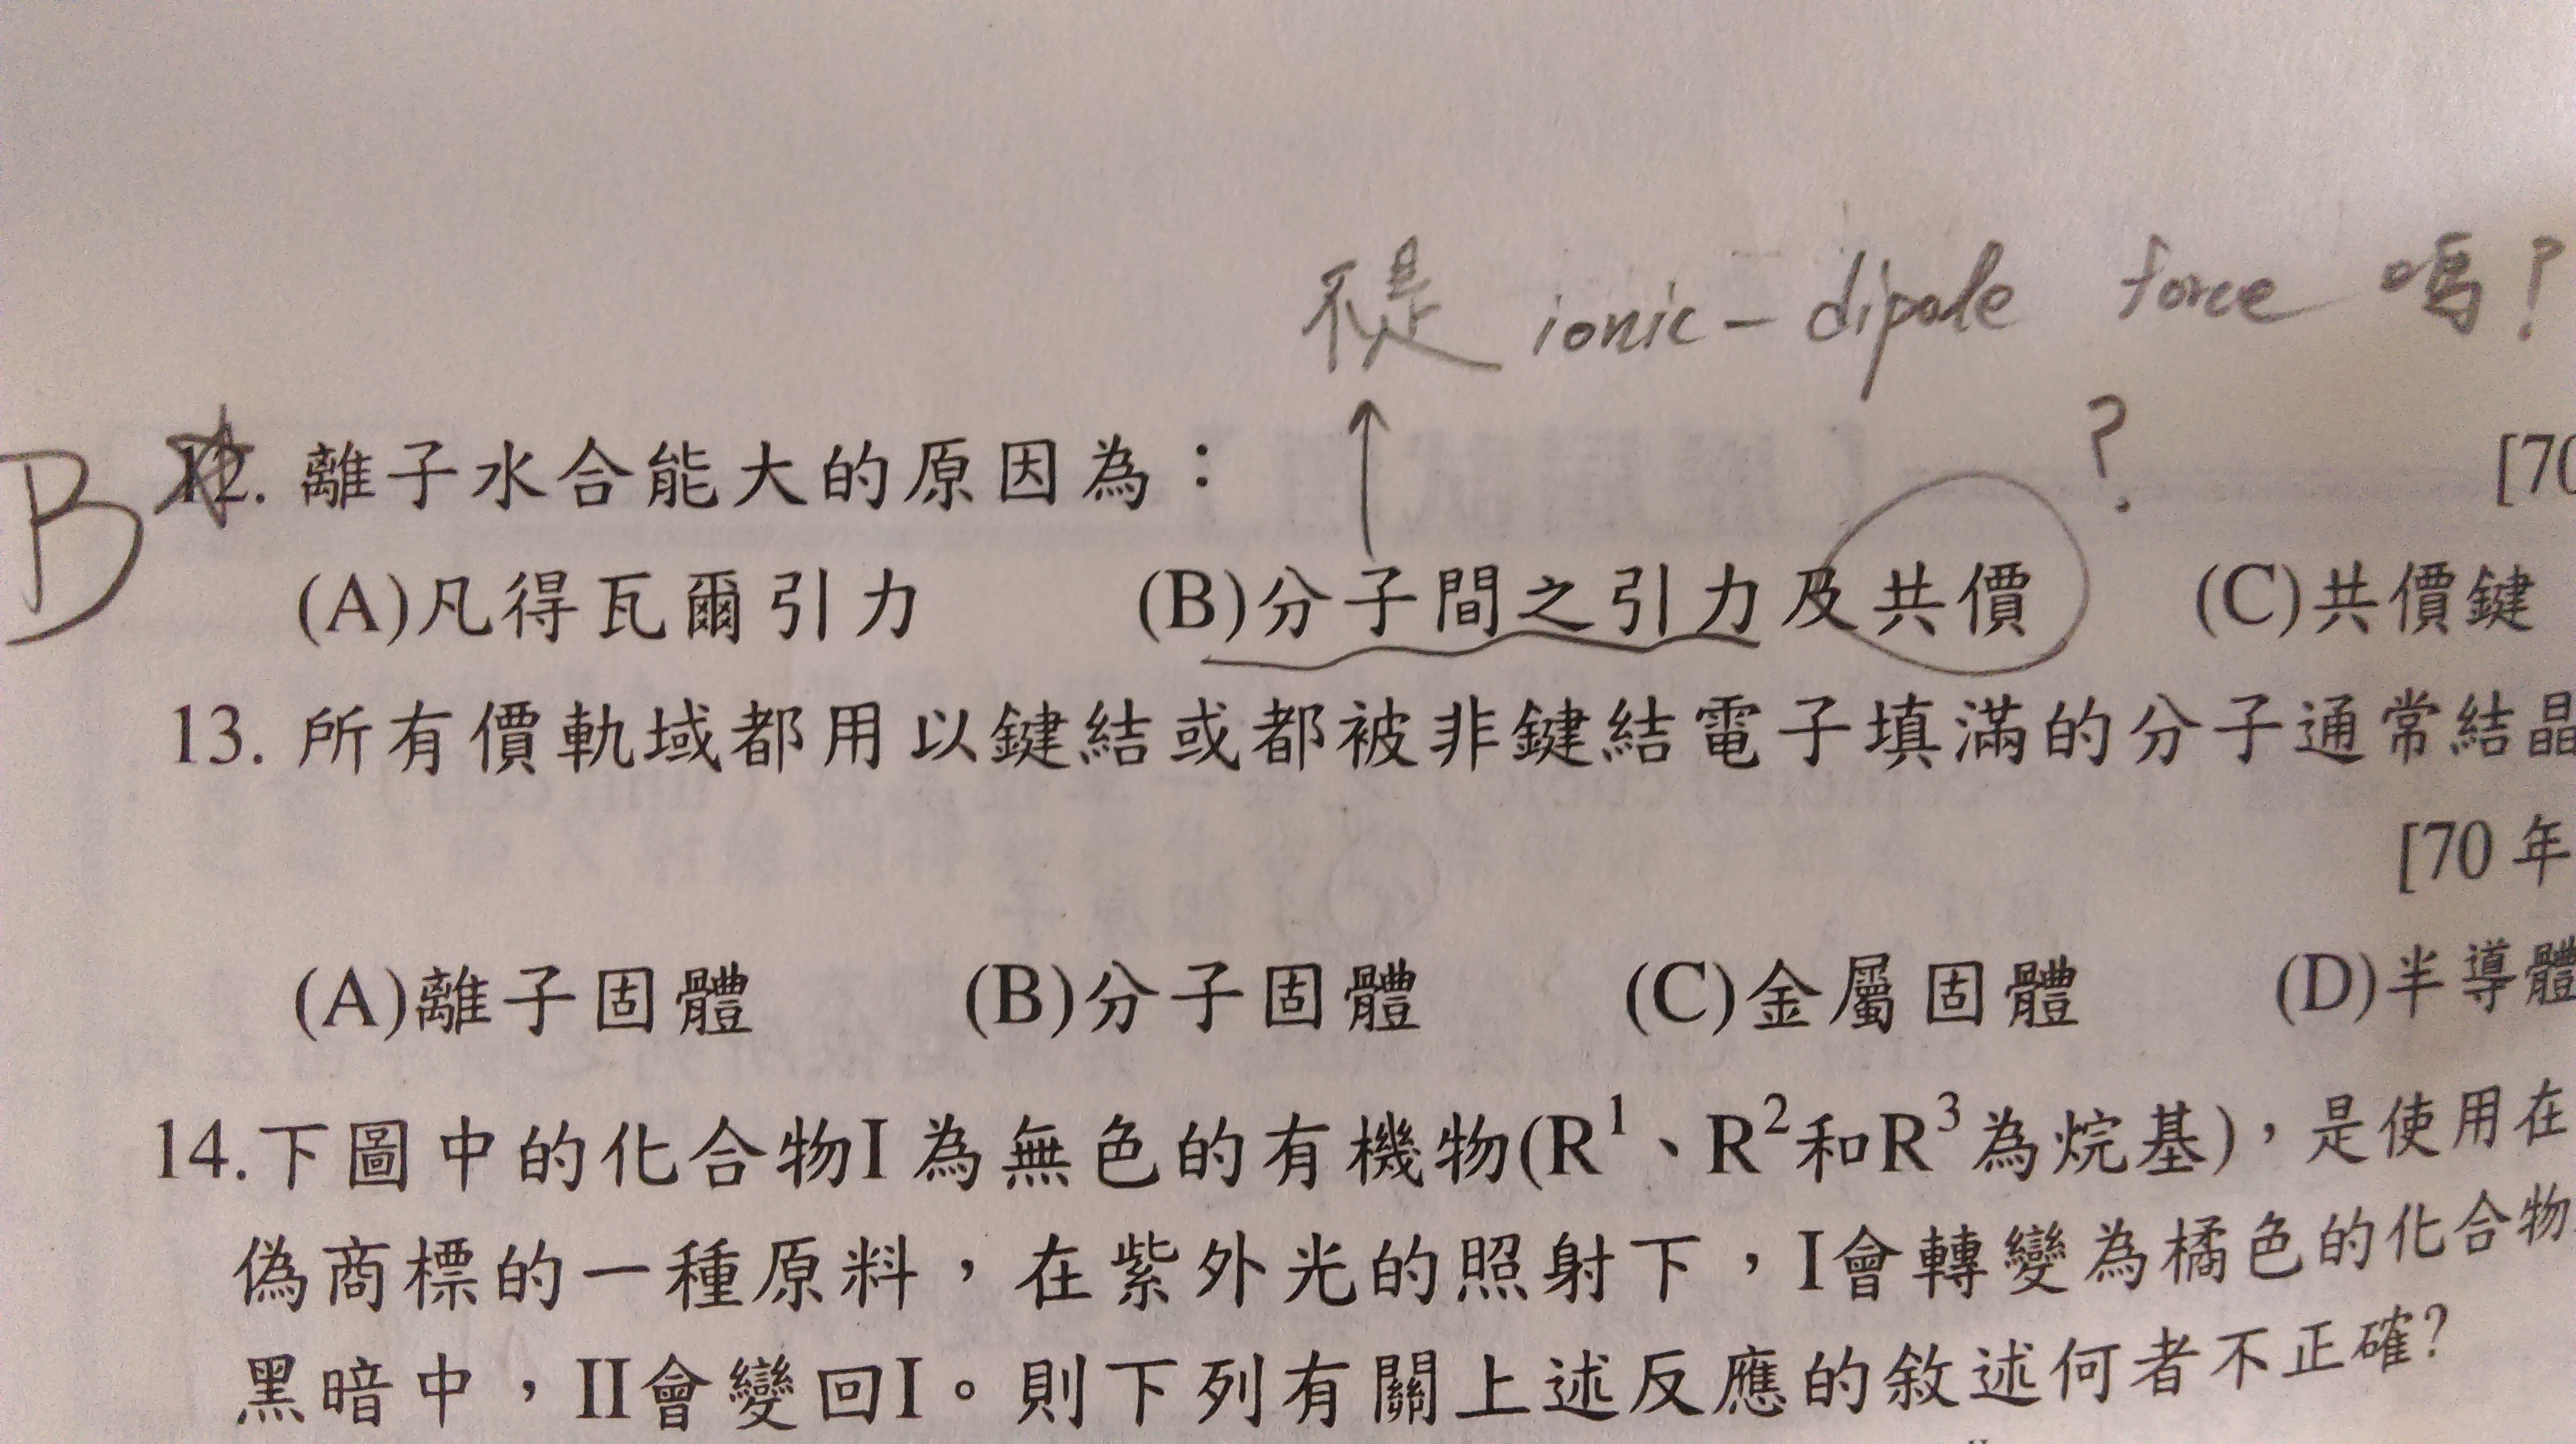 不是 ionic-dipole force 嗎?
?
B 12. 離子水合能大的原因為： [70
(A)凡得瓦爾引力 (B)分子間之引力及共價 (C)共價鍵
13. 所有價軌域都用以鍵結或都被非鍵結電子填滿的分子通常結晶
[70 年
(A)離子固體 (B)分子固體 (C)金屬固體 (D)半導體
14.下圖中的化合物I為無色的有機物(R¹、R²和R³為烷基)，是使用在
偽商標的一種原料，在紫外光的照射下，I會轉變為橘色的化合物
黑暗中，II會變回I。則下列有關上述反應的敘述何者不正確?